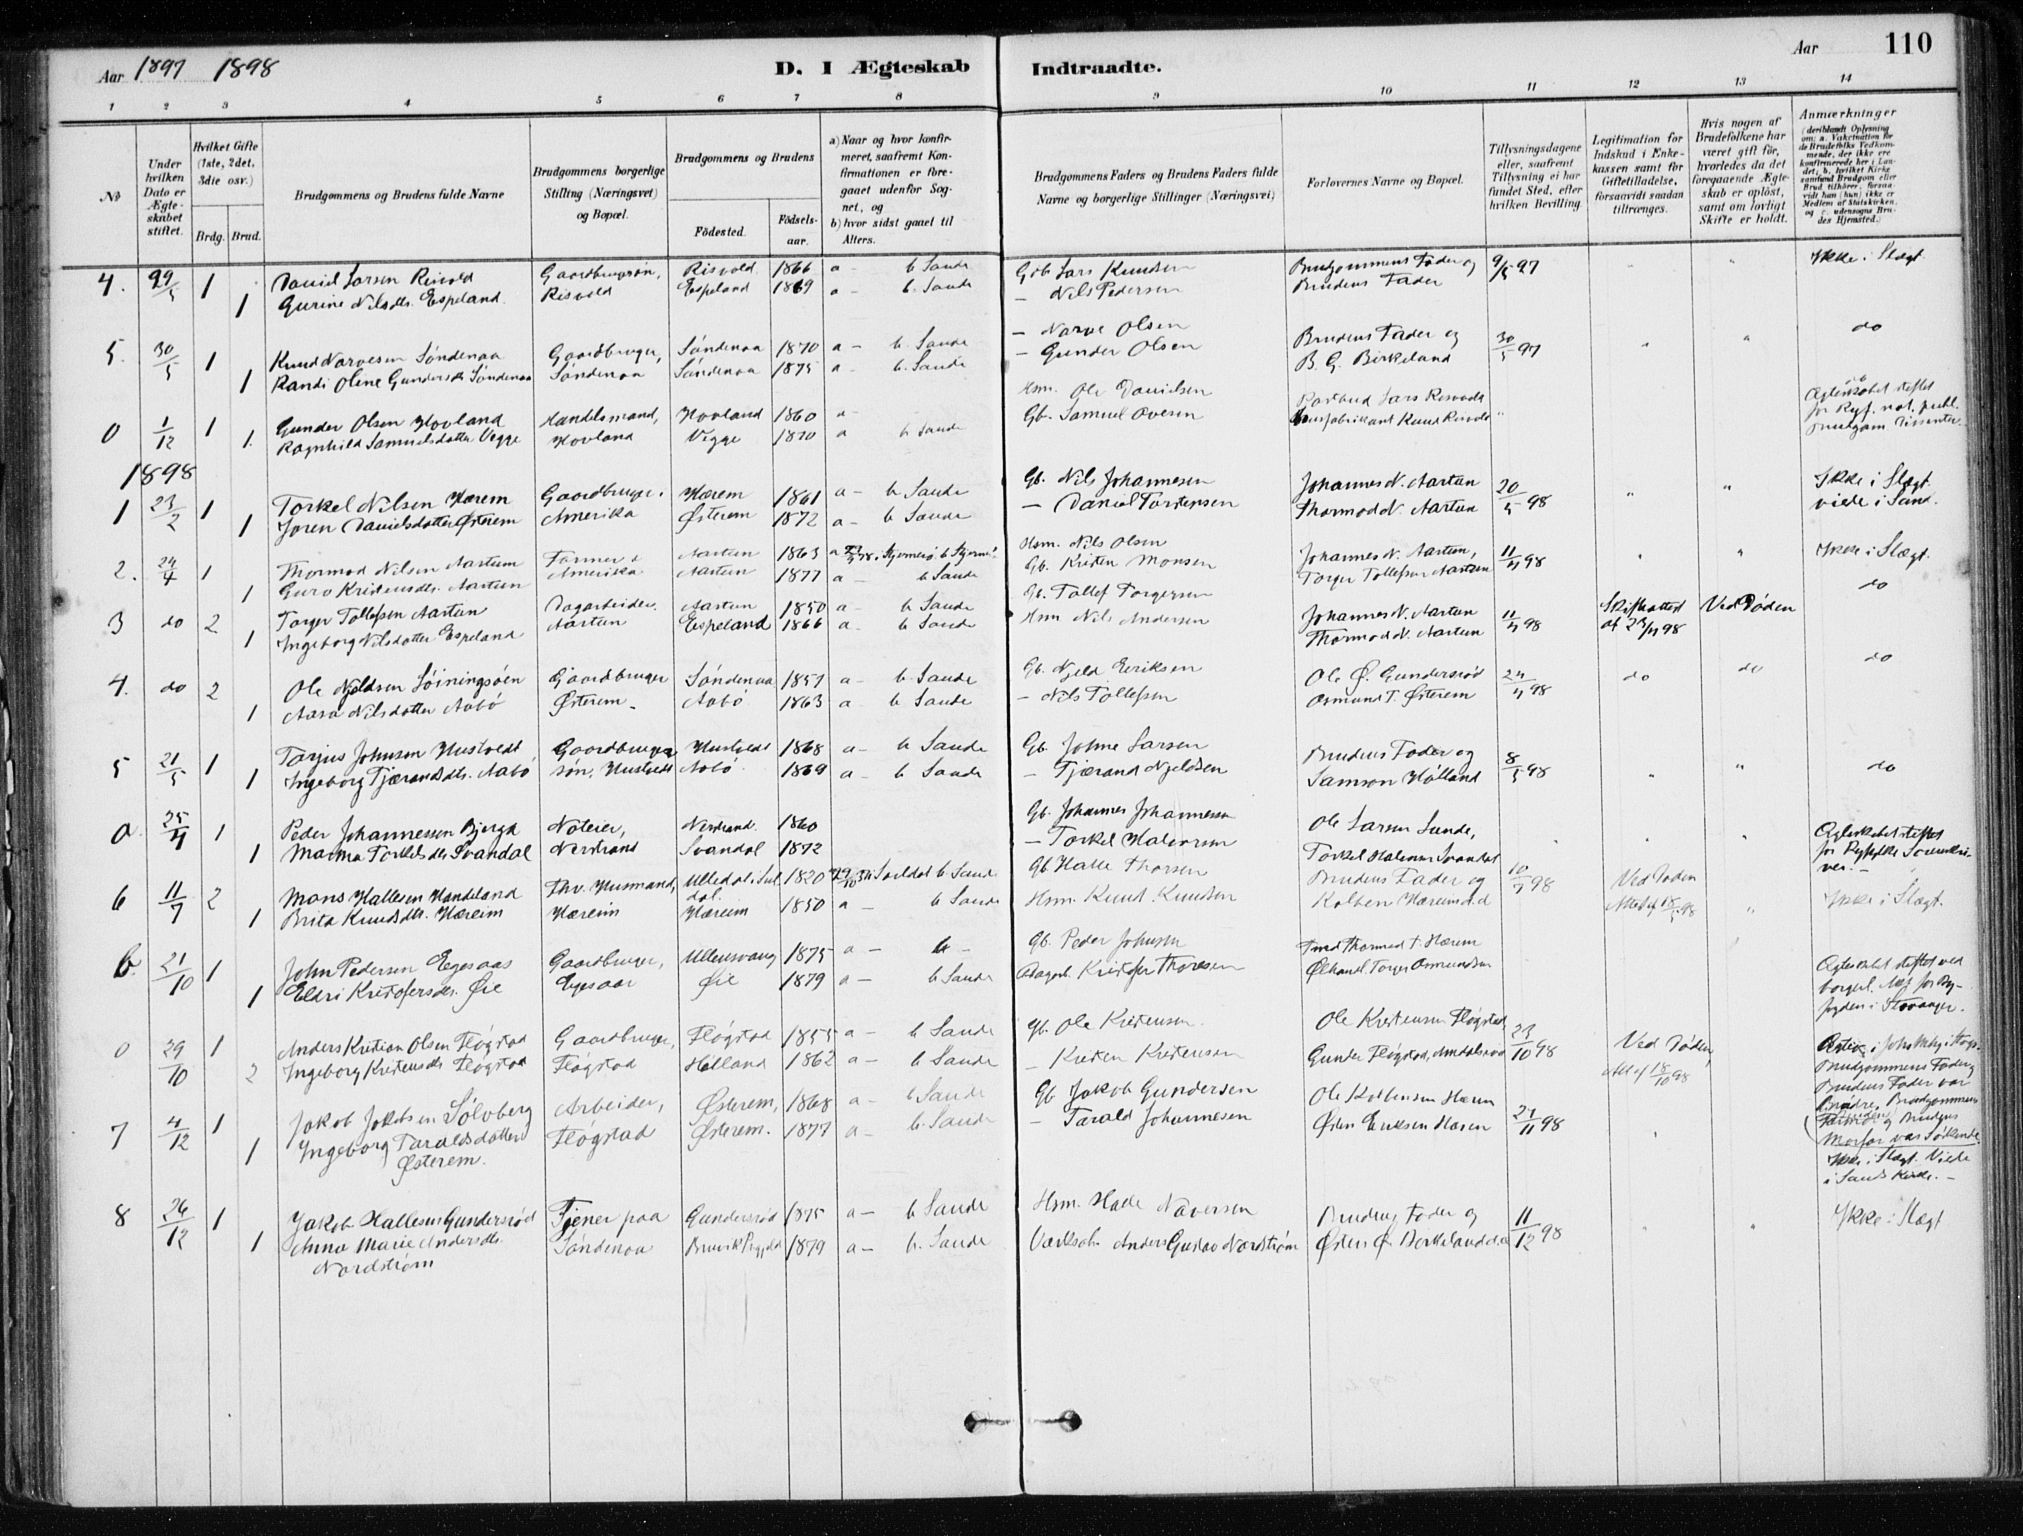 Aar 1897 1898
D. I Ægteskab Indtraadte.
Aar 110
1 2 3 4 5 6 7 8 9 10 11 12 13 14
No
Under hvilken Dato er Ægteskabet stiftet.
Hvilket Gifte (1ste, 2det, 3die osv.)
Brdg. Brud.
Brudgommens og Brudens fulde Navne
Brudgommens borgerlige Stilling (Næringsvei) og Bopæl.
Brudgommens og Brudens
Födested. Födselsaar.
a) Naar og hvor konfirmeret, saafremt Konfirmationen er foregaaet udenfor Sognet, og
b) hvor sidst gaaet til Alters.
Brudgommens Faders og Brudens Faders fulde Navne og borgerlige Stillinger (Næringsvei)
Forlovernes Navne og Bopæl.
Tillysningsdagene eller, saafremt Tillysning ei har fundet Sted, efter hvilken Bevilling.
Legitimation for Indskud i Enkekassen samt for Giftetilladelse, forsaavidt saadan tiltrænges.
Hvis nogen af Brudefolkene har været gift för, hvorledes da det foregaaende Ægteskab er oplöst, samt om lovligt Skifte er holdt.
Anmærkninger (deriblandt Oplysning om: a. Vakcination for de Brudefolks Vedkommende, der ikke ere konfirmerede her i Landet; b. hvilket Kirkesamfund Brudgom eller Brud tilhörer, forsaavidt han (hun) ikke er Medlem af Statskirken, og c. udensogns Brudes Hjemsted.)
4. 29/5 1 Daniel Larsen Risvold Gaardbrugsøn, Risvold 1866 a b Sande Gb Lars Knudsen Brudgommens Fader og 9/5 97 " " Ikke i Slægt
1 Gurine Nilsdtr. Espeland Risvold Espeland 1869 a - b. Sande - Nils Pedersen Brudens Fader
5. 30/5 1 Knud Narvesen Søndenaa Gaardbruger, Søndenaa 1870 a - b. Sande - Narve Olsen Brudens Fader og 30/5 97 " " do
1 Randi Oline Gundersdtr Søndenaa Søndenaa Søndenaa 1875 a - b. Sande - Gunder Olsen B. G. Birkeland
0 1/12 1 Gunder Olsen Hovland Handelsmand, Hovland 1860 a - Hsm. Ole Danielsen Lars Risvold "
1. Ragnhild Samuelsdatter Vegge Hovland Vegge 1870 a b Sande Gb. Samuel Ovesen Knud Risvold
1898
1 23/2 1 Torkel Nilsen Hærem Gaardbruger. Hærem 1861 a - b Sande Gb. Nils Johannesen Johannes N. Aartun 20/5 98 " " Ikke i Slægt.
1 Joren Danielsdatter Østerem Amerika Østerem 1872 a - b Sande - Daniel Torstensen Thormod N. Aartun viede i Sand.
2. 24/4 1 Thormod Nilsen Aartun Farmer i Aartun 1863 Hsm. Nils Olsen Johannes N. Aartun, 11/4 98 " " Ikke i Slægt.
1 Guro Kristensdtr. Aartun Amerika Aartun 1877 a - b Sande Gb. Kristen Monsen Torger Tollefsen Aartun
3 do 2 Torger Tollefsen Aartun Dagarbeider. Aartun 1850 a - b Sande Gb. Tollef Torgersen Johannes N. Aartun 11/4 98 Skifteattest Ved Døden do
1 Ingeborg Nilsdatter Espeland Aartun Espeland 1866 a - b Sande Hsm Nils Andersen Thormod N. Aartun af 23/4 98
4. do 2 Ole Njeldsen Gaardbruger Søndenaa 1851 a - b Sande Gb. Njeld Eriksen Ole Ø. Gundersrød 24/4 98 do do do
1 Aasa Nilsdatter Aabø Østerem - Aabø 1863 a b Sande - Nils Tollefsen Osmund T. Østerem
5 21/5 1 Torjus Johnsen Hustvedt Gaardbruger Hustvedt 1868 a - b Sande Gb. Johne Larsen Brudens Fader og 8/5 98 " " do
1 Ingeborg Tjærandsdtr. Aabø søn, Hustvedt Aabø 1869 a - b Sande - Tjærand Njeldsen Samson Hølland
a. 25/4 1 Peder Johannessen Bjerga Noteier, Nerstrand. 1860 Gb. Johannes Johannesen Ole Larsen Sande, " " Ægteskabet stiftet
1 Marina Torkelsdtr Svandal Nerstrand Svandal 1872 - Torkel Halvorsen Torkel Halvorsen Svandal for Ryfylke
6 11/7 2 Mons Hallesen Handeland Fhv. Husmand, 1820 b Sande Gb Halle Thorsen Brudens Fader og 10/7 98 Ved Døden
1 Brita Knudsdtr. Hæreim Hæreim Hæreim 1850 a - b Sande Hsm. Knud Knudsen Kolben Attest af 18/5 98 " Ikke i Slægt.
b. 21/10 1 John Pedersen Egesaas Gaardbruger, Ullensvang 1875 a - b - Gb. Peder Johnsen Thormod T. Hærem Ægteskabet stiftet ved
1 Eldri Kristofersdtr. Øie Egesaas Øie 1879 a - b Sande Kristofer Thoresen Torger Osmundsen borgerl. i Stavanger.
0 29/10 1 Anders Kristian Olsen Fløgstad Gaardbruger, Fløgstad 1855 a - b Sande Gb. Ole Kristensen Ole Kristensen Fløgstad 23/10 98 Ved Døden,
2 Ingeborg Kristensdtr Fløgstad Fløgstad Hølland 1862 a - b Sande - Kristen Kristensen Gunder Fløgstad, Att af 18/10 98 Brudgommens Fader og Brudens Fader var Brødre, Brudgommens
7 4/12 1 Jakob Jakobsen Sølvberg Arbeider, Østerem, 1868 a - b Sande Gb Jakob Gundersen Ole Kolbensen Hærem 27/11 98 " og Brudens Morfar var Søskende
1 Ingeborg Taraldsdatter Østerem. Fløgstad Østerem. 1877 a - b. Sande - Tarald Johannesen Østen Eriksen Ikke i Slægt. Viede i Sands Kirke. -
8 26/12 1 Jakob Hallesen Gundersrød Tjener paa Gundersrød 1875 a - b Sande Hsm. Brudens Fader og 11/12 98 " " Ikke i Slægt
1 Anna Marie Andersdtr. Nordstrøm Søndenaa 1879 a - b. Sande Anders Gustav Nordstrøm Østen Ø. Birkeland